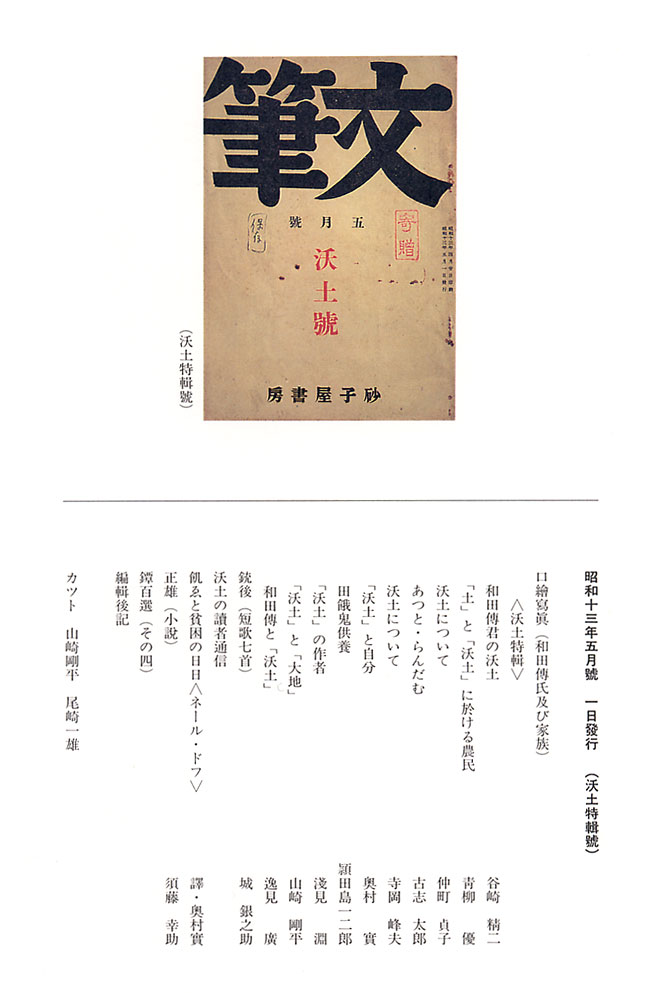 文筆
五月號
寄贈
保存
沃土號
砂子屋書房
(沃土特輯號)
昭和十三年五月號 一日發行 (沃土特輯號)
口繪寫眞(和田傳氏及び家族)
〈沃土特輯〉
和田傳君の沃土 谷崎 精二
「土」と「沃土」に於ける農民 青柳 優
沃土について 仲町 貞子
あつと・らんだむ 古志 太郎
沃土について 寺岡 峰夫
「沃土」と自分 奥村 實
田餓鬼供養 頴田島一二郎
「沃土」の作者 淺見 淵
「沃土」と「大地」 山崎 剛平
和田傳と「沃土」 逸見 廣
銃後(短歌七首) 城 銀之助
沃土の讀者通信
飢ゑと貧困の日日〈ネール・ドフ〉 譯・奥村實
正雄(小說) 須藤 幸助
鐔百選(その四)
編輯後記
カツト 山崎剛平 尾崎一雄